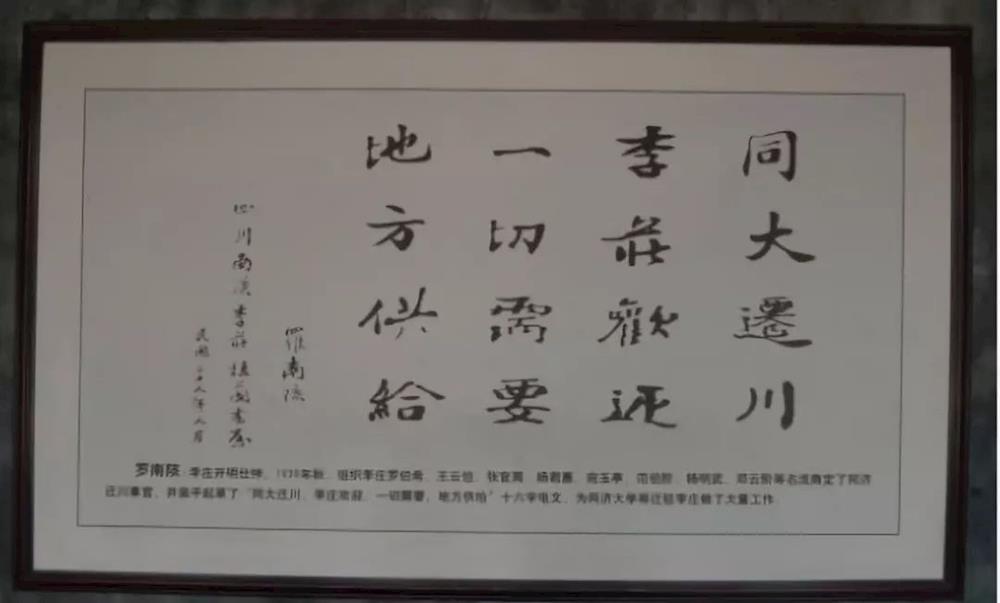 同大遷川
李莊歡迎
一切需要
地方供給
羅南陔
四川南溪李莊
民國二十八年八月
罗南陔：李庄开明仕绅，1939年秋，组织李庄罗伯希、王云伯、张官周、杨君惠、宛玉亭、范伯楷、杨明武、邓云阶等名流商定了同济
迁川事宜，并亲手起草了“同大迁川，李庄欢迎，一切需要，地方供给”十六字电文，为同济大学等迁驻李庄做了大量工作